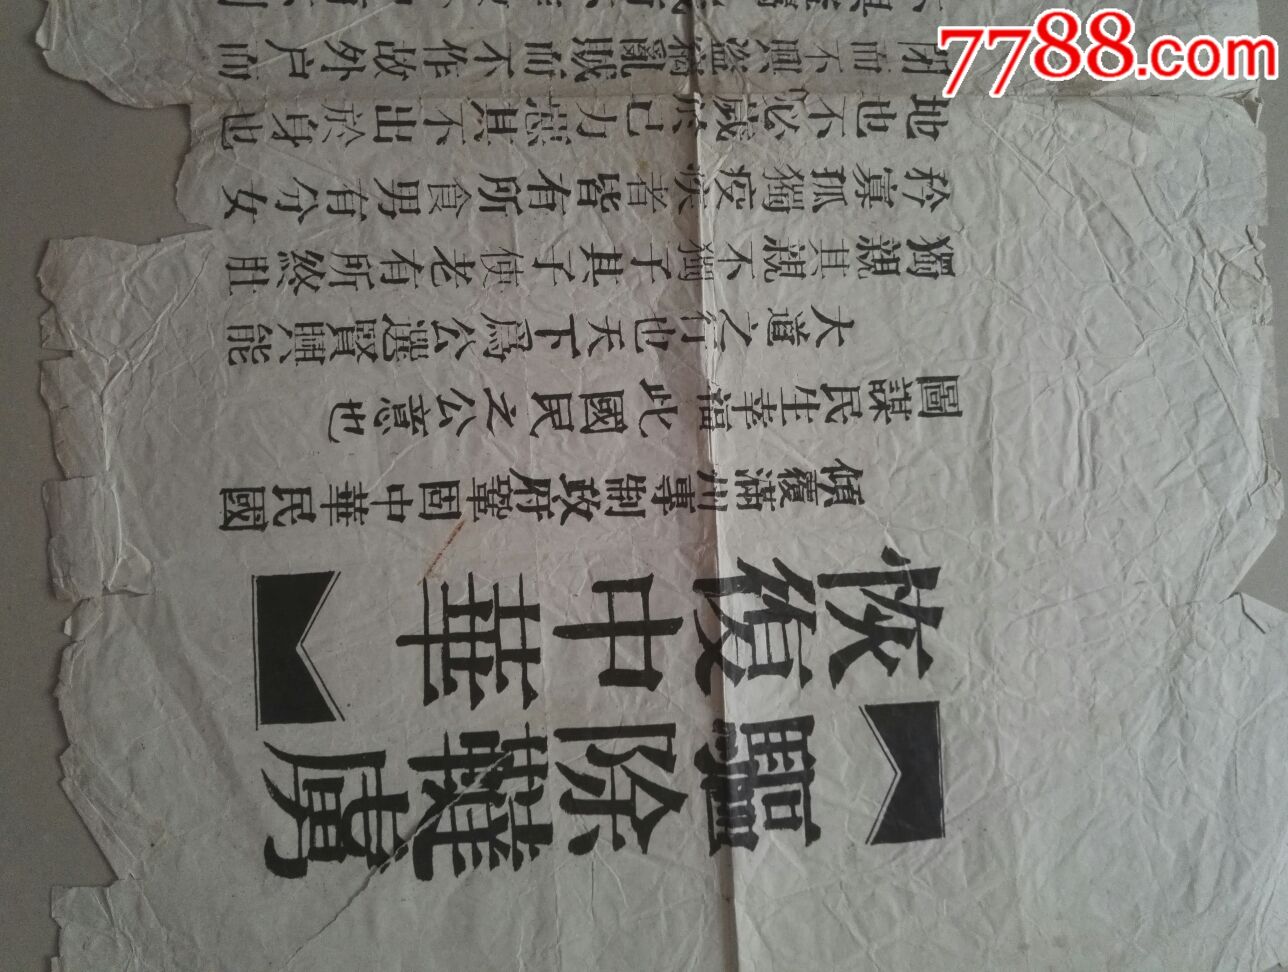 驅除韃虜
恢復中華
傾覆滿州專制政府鞏固中華民國
圖謀民生幸福此國民之公意也
大道之行也天下為公選賢與能
獨親其親不獨子其子使老有所終壯
矜寡孤獨疫疾者皆有所食男有分女
地也不必藏於己力惡其不出於身也
閉而不興盜竊亂賊而不作故外户而
7788.com